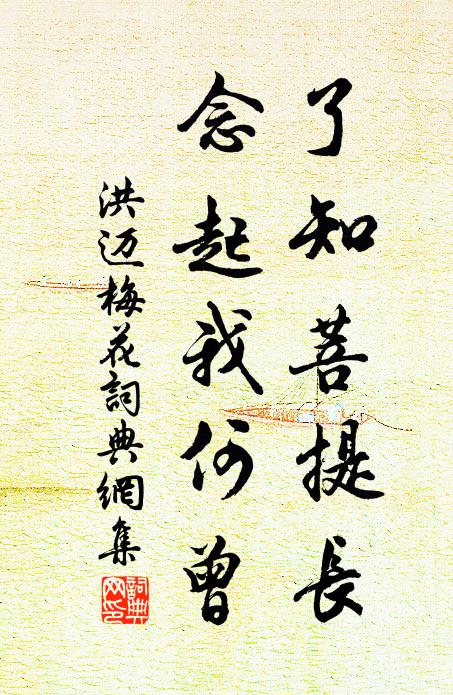 了知菩提長
念起我何曾
洪迈梅花詞典網集
詞典
网印